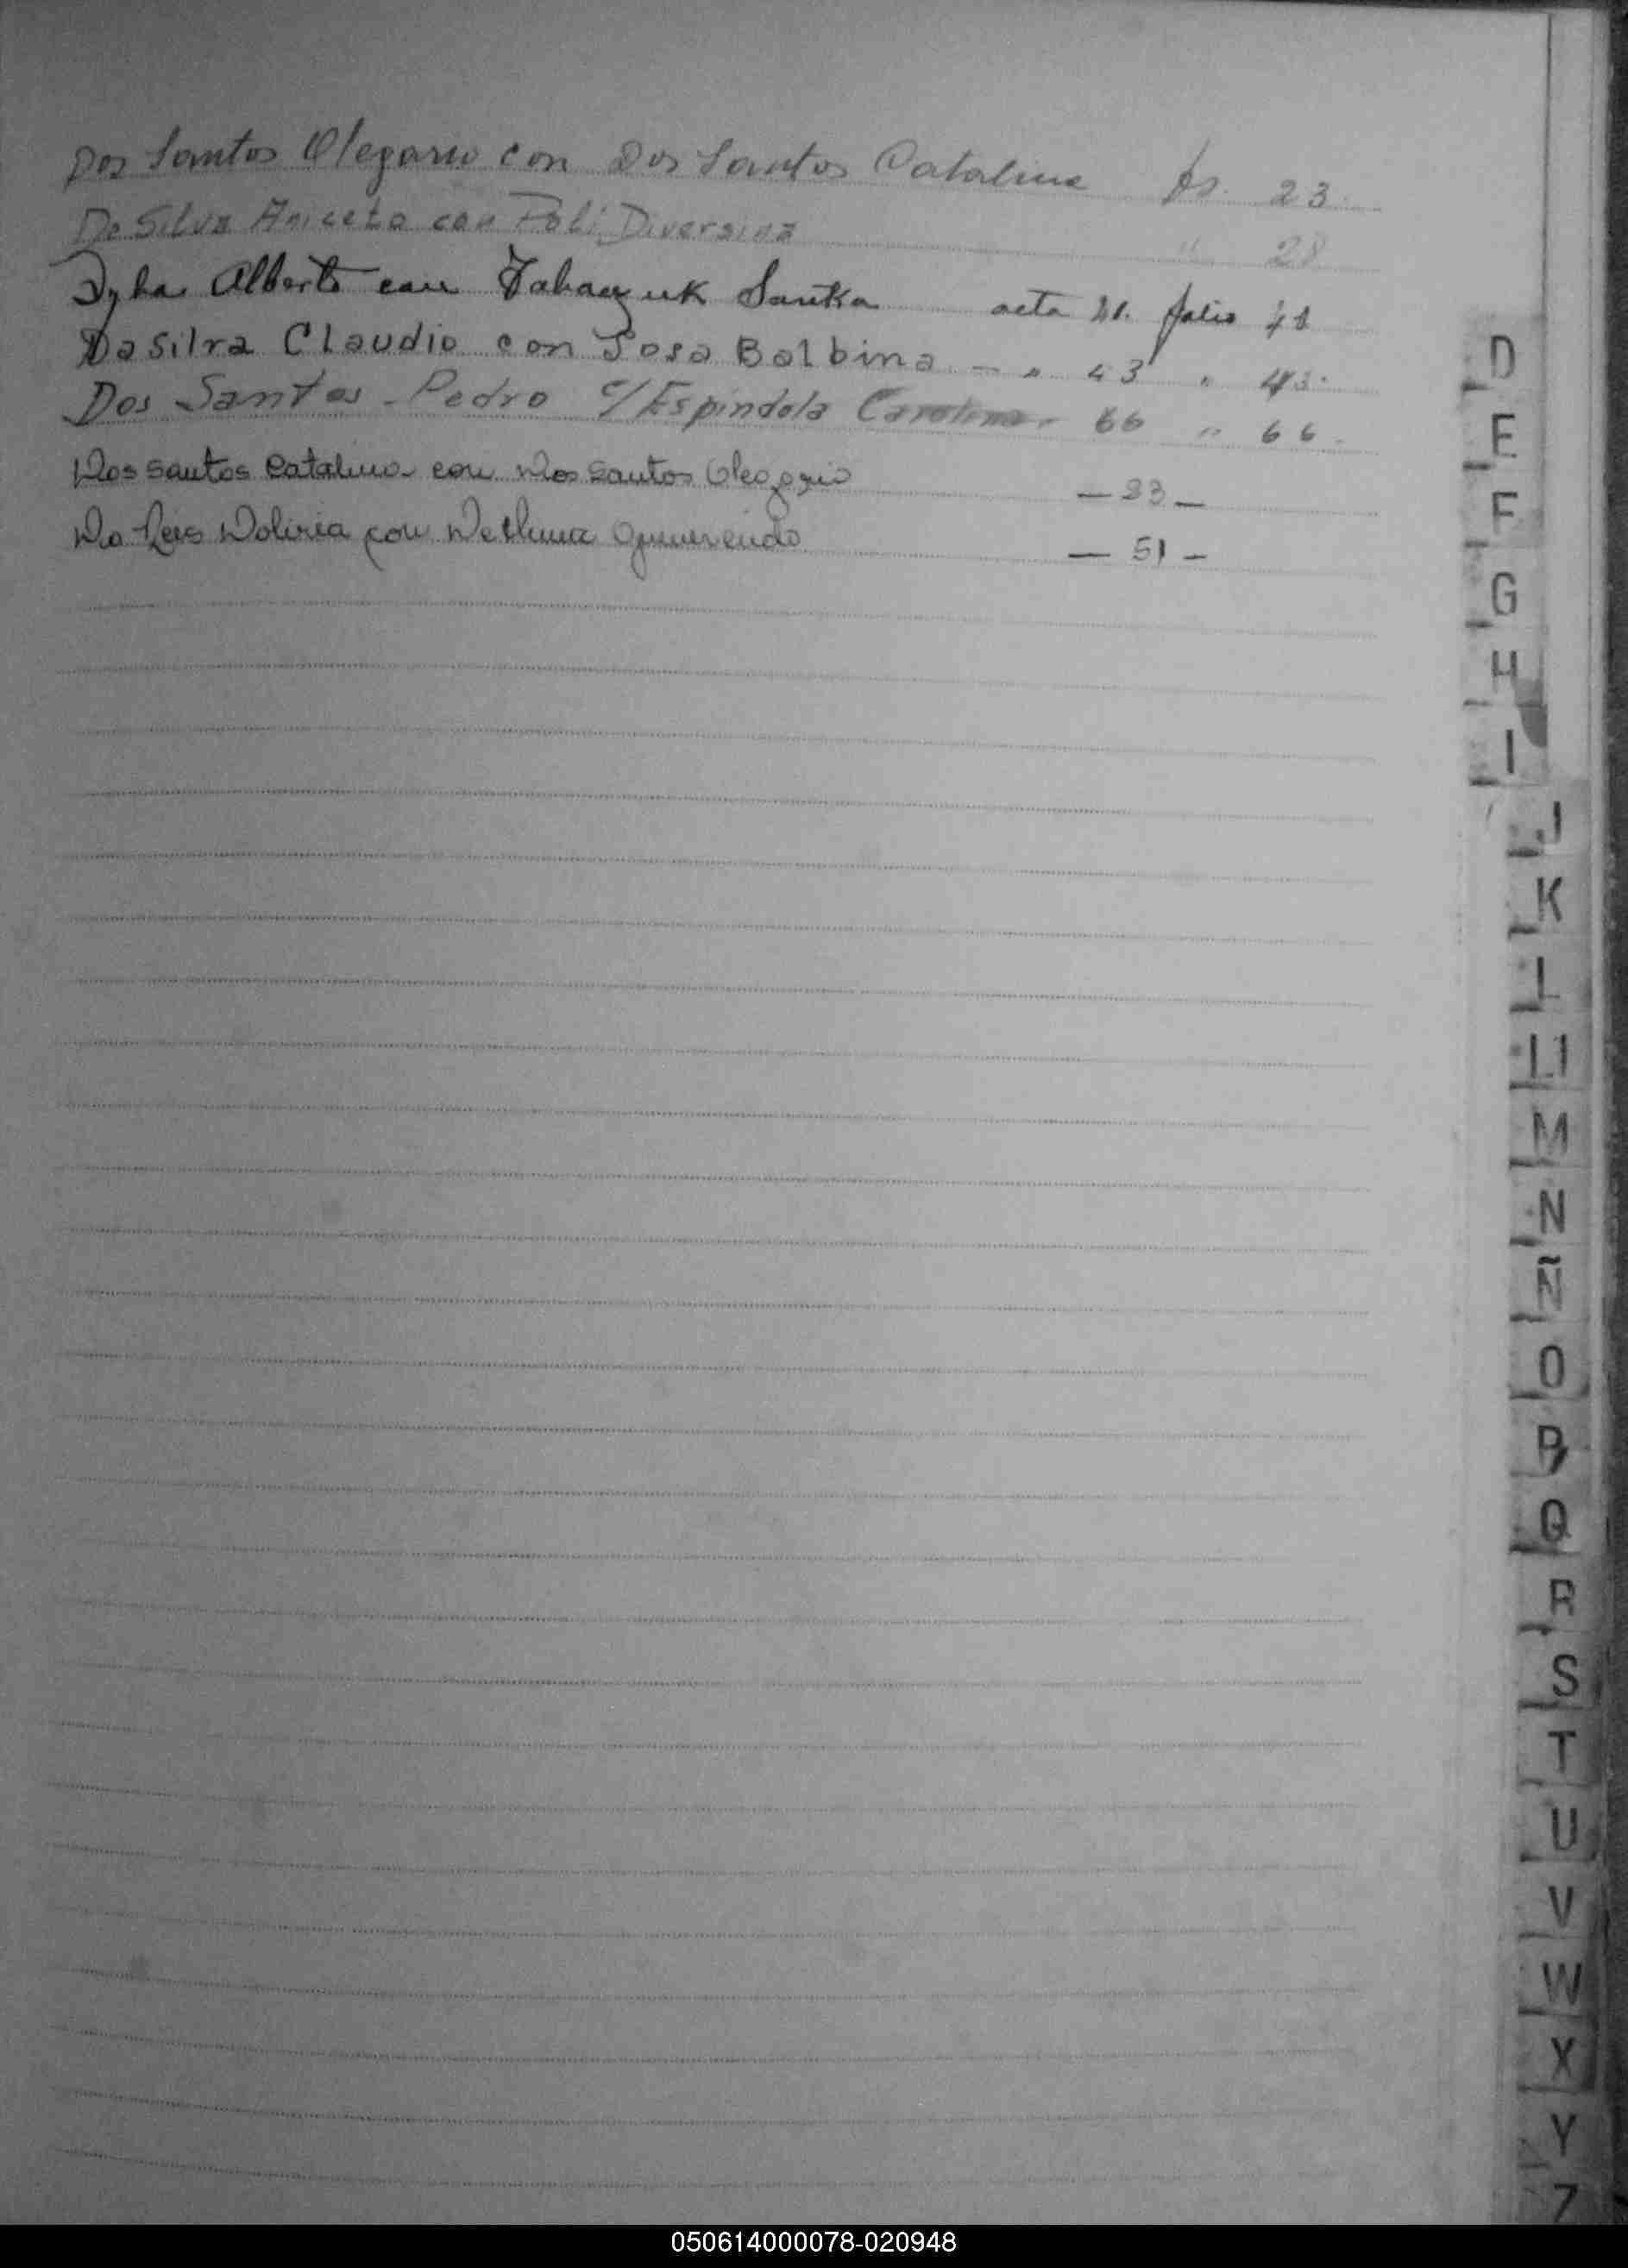 Dos Santos Olegario con Dos Santos Catalina fs. 23
De Silva Aniceto con Poli Diversina " 28
Dyba Alberto con Sanka acta 41. folio 41
Dasilva Claudio con Sosa Balbina - " 43 " 43.
Dos Santos Pedro c/ Espindola Carolina - 66 " 66.
Dos Santos Catalina con Dos Santos Olegario — 23 —
Da con — 51 —
D
E
F
G
H
I
J
K
L
Ll
M
N
Ñ
O
P
Q
R
S
T
U
V
W
X
Y
Z
050614000078-020948